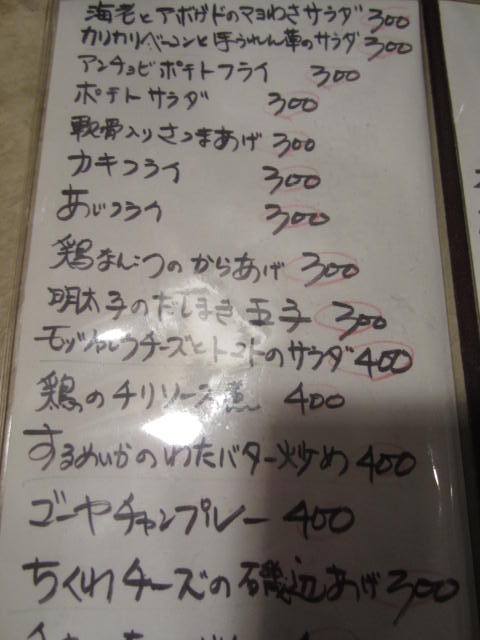 海老とアボガドのマヨわさサラダ 300
カリカリベーコンとほうれん草のサラダ 300
アンチョビポテトフライ 300
ポテトサラダ 300
軟骨入りさつまあげ 300
カキフライ 300
あじフライ 300
鶏まんじゅうのからあげ 300
明太子のだしまき玉子 300
モッツァレラチーズとトマトのサラダ 400
鶏のチリソース煮 400
するめいかのわたバター炒め 400
ゴーヤチャンプレー 400
ちくわチーズの磯辺あげ 300